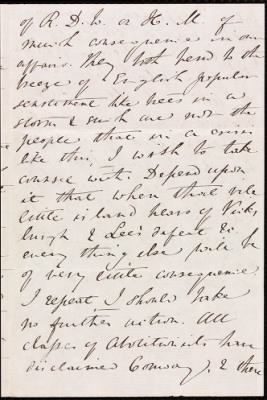 of R. D. W. or H. M. of
much consequence in our
affairs. They both bend to the
breeze of English popular
sentiment like trees in a
storm & such are not the
people, that in a crisis
like this, I wish to take
counsel with. Depend upon
it that when that vile
little island hears of Vicks
burgh & Lee's defeat &c.
every thing else will be
of very little consequence.
I repeat, I should take
no further action. All
classes of Abolitionists have
disclaimed Conway, & there